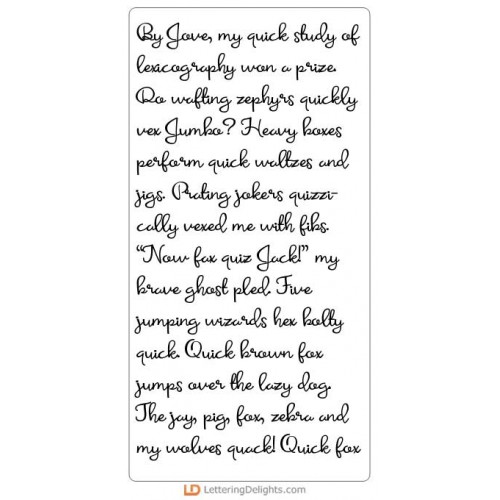 By Jove, my quick study of
lexicography won a prize.
Do wafting zephyrs quickly
vex Jumbo? Heavy boxes
perform quick waltzes and
jigs. Prating jokers quizzi-
cally vexed me with fibs.
“Now fax quiz Jack!” my
brave ghost pled. Five
jumping wizards hex bolty
quick. Quick brown fox
jumps over the lazy dog.
The jay, pig, fox, zebra and
my wolves quack! Quick fox
LD LetteringDelights.com